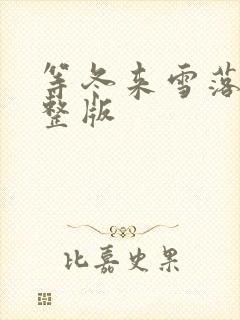 等冬来雪落
整版
比嘉史果